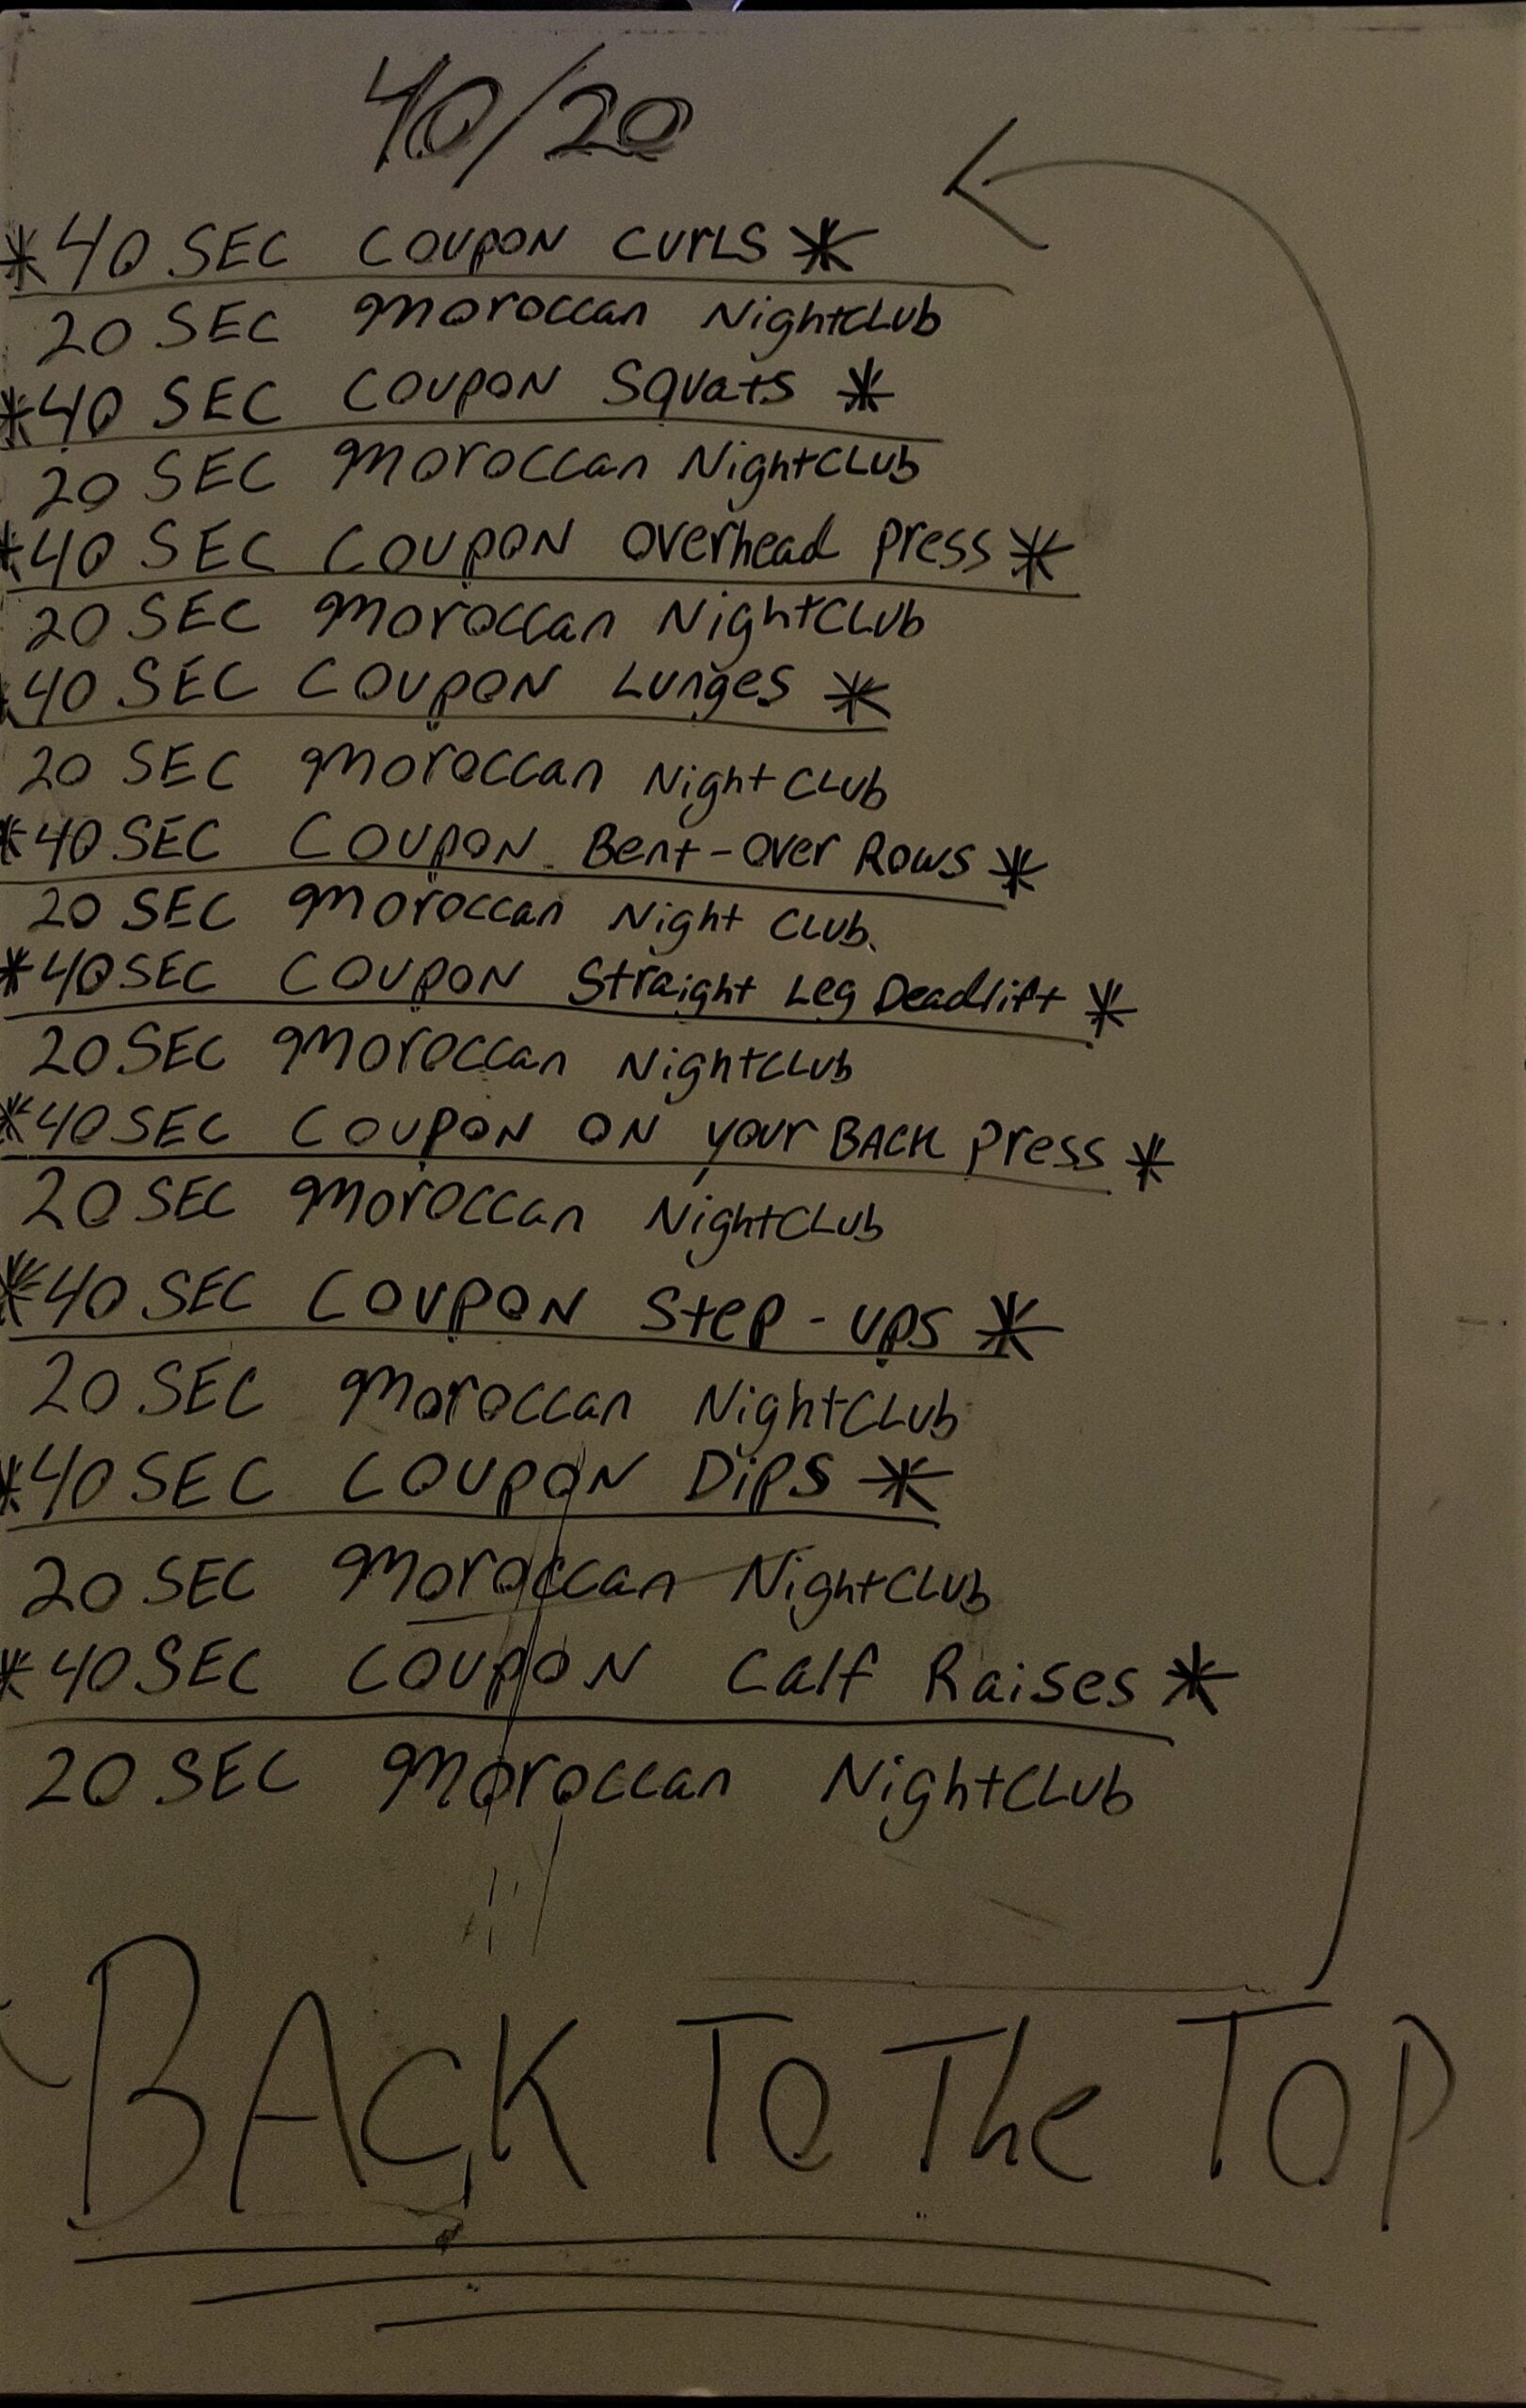 40/20
*40 SEC COUPON CURLS*
20 SEC Moroccan NightCLub
*40 SEC COUPON Squats *
20 SEC Moroccan NightCLub
*40 SEC COUPON Overhead Press*
20 SEC Moroccan NightCLub
*40 SEC COUPON Lunges *
20 SEC Moroccan NightCLub
*40 SEC COUPON Bent-Over Rows*
20 SEC Moroccan Night CLub.
*40 SEC COUPON Straight Leg Deadlift *
20 SEC Moroccan NightCLub
*40 SEC COUPON ON your BACK Press *
20 SEC Moroccan NightCLub
*40 SEC COUPON Step-ups *
20 SEC Moroccan NightCLub
*40 SEC COUPON Dips *
20 SEC Moroccan NightCLub
*40 SEC COUPON Calf Raises *
20 SEC Moroccan NightCLub
BACK To The TOP